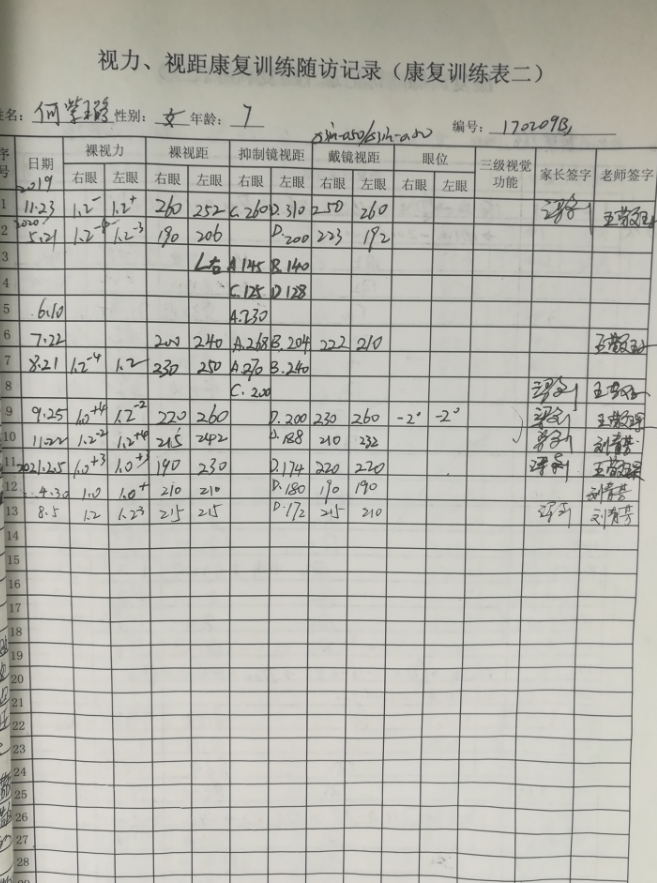 视力、视距康复训练随访记录（康复训练表二）
姓名： 性别：女 年龄：7 编号：170209B
序号 日期 裸视力 裸视距 抑制镜视距 戴镜视距 眼位 三级视觉功能 家长签字 老师签字
右眼 左眼 右眼 左眼 右眼 左眼 右眼 左眼 右眼 左眼
2019
1 11.23 1.2⁻ 1.2⁺ 260 252 C.260 D.310 250 260
2020
2 5.21 1.2⁻³ 190 206 D.200 223 192
3 A.145 B.140
4 C.125 D.128
5 6.10 A.230
6 7.22 200 240 A.268 B.204 222 210
7 8.21 1.2⁻⁴ 1.2 230 250 A.270 B.240
8 C.200
9 9.25 1.0⁺⁴ 1.2⁻² 220 260 D.200 230 260 -2° -2°
10 11.22 1.2⁻² 1.2⁺⁴ 215 242 D.188 210 232 刘青芳
11 2021.2.5 1.0⁺³ 1.0⁺³ 190 230 D.174 220 220
12 4.30 1.0 1.0⁺ 210 210 D.180 190 190 刘青芳
13 8.5 1.2 1.2³ 215 215 D.172 215 210 刘青芳
14
15
16
17
18
19
20
21
22
23
24
25
26
27
28